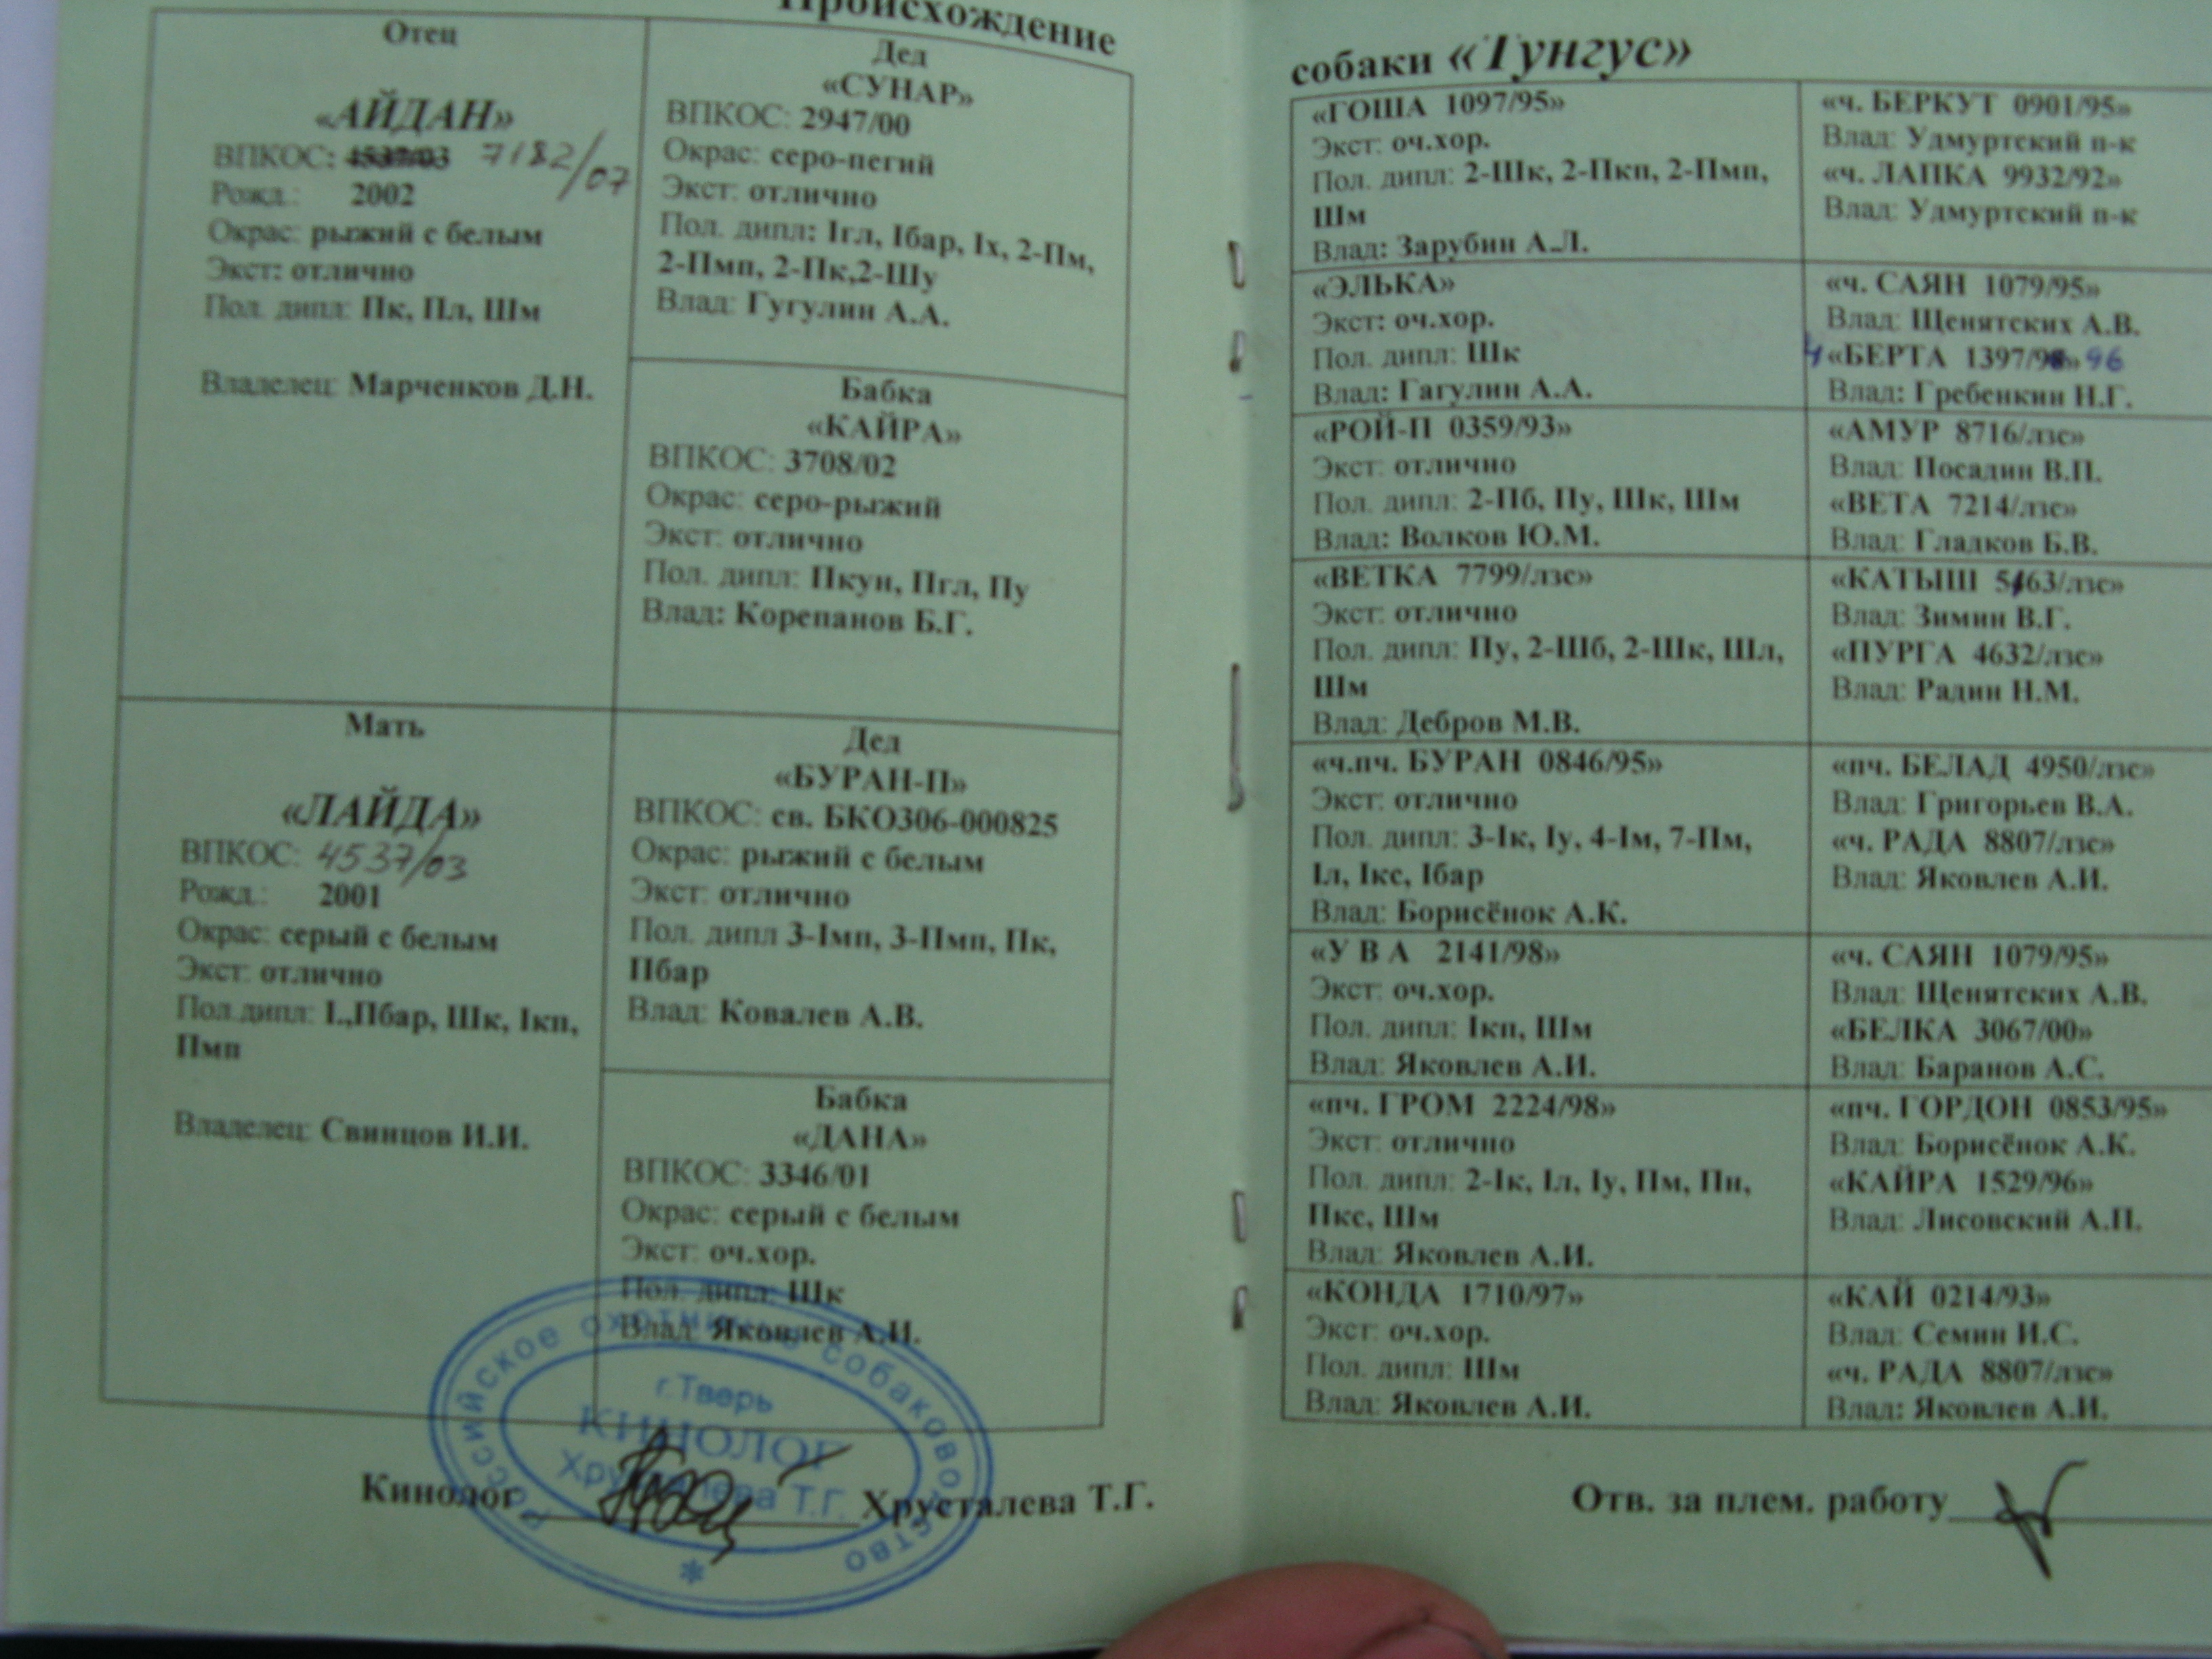 Происхождение
Отец
«АЙДАН»
ВПКОС: 4537/03 7182/07
Рожд.: 2002
Окрас: рыжий с белым
Экст: отлично
Пол. дипл: Пк, Пл, Шм
Владелец: Марченков Д.Н.
Дед
«СУНАР»
ВПКОС: 2947/00
Окрас: серо-пегий
Экст: отлично
Пол. дипл: Iгл, Iбар, Iх, 2-Пм,
2-Пмп, 2-Пк,2-Шу
Влад: Гугулин А.А.
Бабка
«КАЙРА»
ВПКОС: 3708/02
Окрас: серо-рыжий
Экст: отлично
Пол. дипл: Пкун, Пгл, Пу
Влад: Корепанов Б.Г.
Мать
«ЛАЙДА»
ВПКОС: 4537/03
Рожд.: 2001
Окрас: серый с белым
Экст: отлично
Пол.дипл: I.,Пбар, Шк, Iкп,
Пмп
Владелец: Свинцов И.И.
Дед
«БУРАН-П»
ВПКОС: св. БКО306-000825
Окрас: рыжий с белым
Экст: отлично
Пол. дипл 3-Iмп, 3-Пмп, Пк,
Пбар
Влад: Ковалев А.В.
Бабка
«ДАНА»
ВПКОС: 3346/01
Окрас: серый с белым
Экст: оч.хор.
Пол. дипл: Шк
Влад: Яковлев А.И.
Российское охотничье собаководство
г.Тверь
КИНОЛОГ
Хрусталева Т.Г.
Кинолог Хрусталева Т.Г.
собаки «Тунгус»
«ГОША 1097/95»
Экст: оч.хор.
Пол. дипл: 2-Шк, 2-Пкп, 2-Пмп,
Шм
Влад: Зарубин А.Л.
«ч. БЕРКУТ 0901/95»
Влад: Удмуртский п-к
«ч. ЛАПКА 9932/92»
Влад: Удмуртский п-к
«ЭЛЬКА»
Экст: оч.хор.
Пол. дипл: Шк
Влад: Гагулин А.А.
«ч. САЯН 1079/95»
Влад: Щенятских А.В.
ч «БЕРТА 1397/98» 96
Влад: Гребенкин Н.Г.
«РОЙ-П 0359/93»
Экст: отлично
Пол. дипл: 2-Пб, Пу, Шк, Шм
Влад: Волков Ю.М.
«АМУР 8716/лзс»
Влад: Посадин В.П.
«ВЕТА 7214/лзс»
Влад: Гладков Б.В.
«ВЕТКА 7799/лзс»
Экст: отлично
Пол. дипл: Пу, 2-Шб, 2-Шк, Шл,
Шм
Влад: Дебров М.В.
«КАТЫШ 5163/лзс»
Влад: Зимин В.Г.
«ПУРГА 4632/лзс»
Влад: Радин Н.М.
«ч.пч. БУРАН 0846/95»
Экст: отлично
Пол. дипл: 3-Iк, Iу, 4-Iм, 7-Пм,
Iл, Iкс, Iбар
Влад: Борисёнок А.К.
«пч. БЕЛАД 4950/лзс»
Влад: Григорьев В.А.
«ч. РАДА 8807/лзс»
Влад: Яковлев А.И.
«У В А 2141/98»
Экст: оч.хор.
Пол. дипл: Iкп, Шм
Влад: Яковлев А.И.
«ч. САЯН 1079/95»
Влад: Щенятских А.В.
«БЕЛКА 3067/00»
Влад: Баранов А.С.
«пч. ГРОМ 2224/98»
Экст: отлично
Пол. дипл: 2-Iк, Iл, Iу, Пм, Пн,
Пкс, Шм
Влад: Яковлев А.И.
«пч. ГОРДОН 0853/95»
Влад: Борисёнок А.К.
«КАЙРА 1529/96»
Влад: Лисовский А.П.
«КОНДА 1710/97»
Экст: оч.хор.
Пол. дипл: Шм
Влад: Яковлев А.И.
«КАЙ 0214/93»
Влад: Семин И.С.
«ч. РАДА 8807/лзс»
Влад: Яковлев А.И.
Отв. за плем. работу